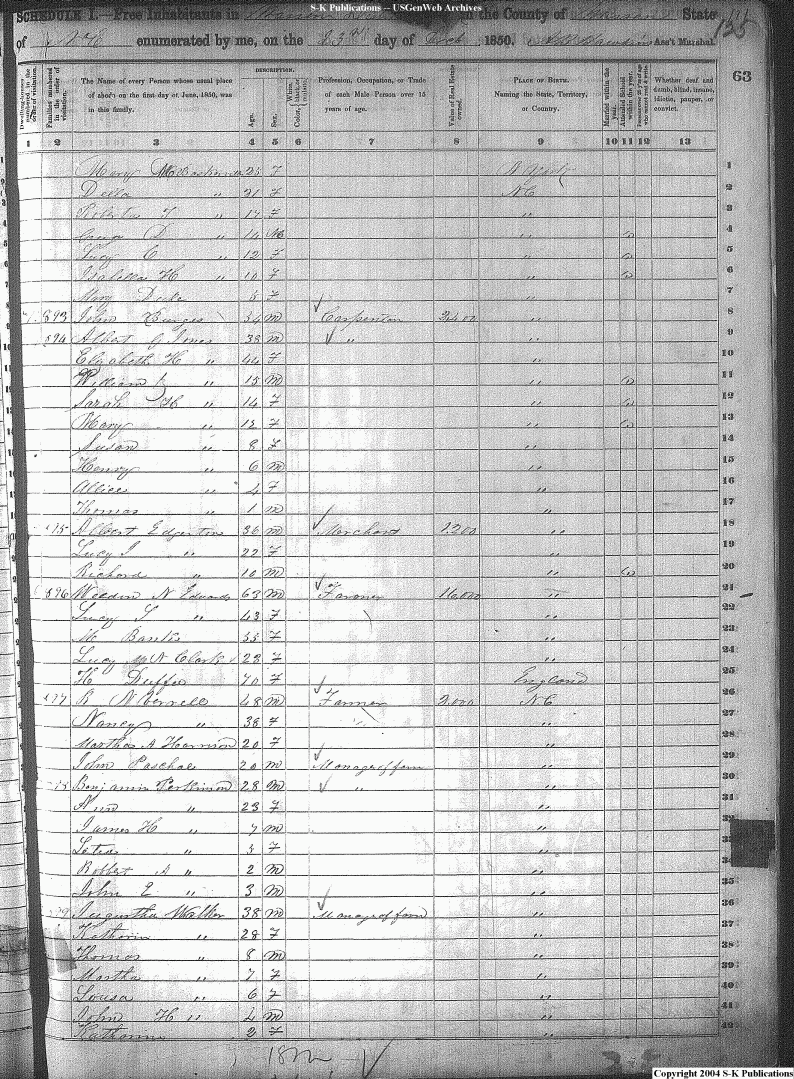 S-K Publications -- USGenWeb Archives
SCHEDULE I.—Free Inhabitants in in the County of State
of N C enumerated by me, on the 23rd day of Oct 1850. Ass't Marshal. 125
63
DESCRIPTION.
Dwelling-houses numbered in the order of visitation.
Families numbered in the order of visitation.
The Name of every Person whose usual place of abode on the first day of June, 1850, was in this family.
Age.
Sex.
White, black, or mulatto.
Profession, Occupation, or Trade of each Male Person over 15 years of age.
Value of Real Estate owned.
PLACE OF BIRTH. Naming the State, Territory, or Country.
Married within the year.
Attended School within the year.
Persons over 20 y'rs of age who cannot read & write.
Whether deaf and dumb, blind, insane, idiotic, pauper, or convict.
1 2 3 4 5 6 7 8 9 10 11 12 13
Mary F 1
Della " 21 F NC 2
Roberta T " 17 F " 3
D " 14 M " 4
Lucy C " 12 F " 5
Isabella H " 10 F " 6
Mary Duke F " 7
893 John Burges 34 m Carpenter 2400 " 8
894 Albert G Jones 38 m " " 9
Elizabeth H " 44 F " 10
William " 15 m " 11
Sarah H " 14 F " 12
Mary " 12 F " 13
Susan " 8 F " 14
Henry " 6 m " 15
Allice " 4 F " 16
Thomas " 1 m " 17
Albert Edgerton 36 m Merchant 1200 " 18
Lucy J " 22 F " 19
Richard " 10 m " 20
896 Weldon N Edwards 63 m Farmer 16,000 " 21
Lucy " 43 F " 22
M Banks 55 F " 23
Lucy McN Clark 23 F " 24
H Duffer 70 F England 25
R N Verrell 48 m Farmer 2,000 NC 26
Nancy " 38 F " 27
Martha A Harrison 20 F " 28
John Paschal 20 m Manager of farm " 29
Benjamin Perkinson 28 m " " 30
Ann " 23 F " 31
James H " 7 m " 32
" 5 F "
Robbert A " 2 m "
John E " 3 m " 35
Walker 38 m Manager of farm " 36
Katharin " 28 F " 37
Thomas " 8 m " 38
Martha " 7 F " 39
Lousa " 6 F " 40
John H " 4 m " 41
Katharine 2 F " 42
18 m
Copyright 2004 S-K Publications